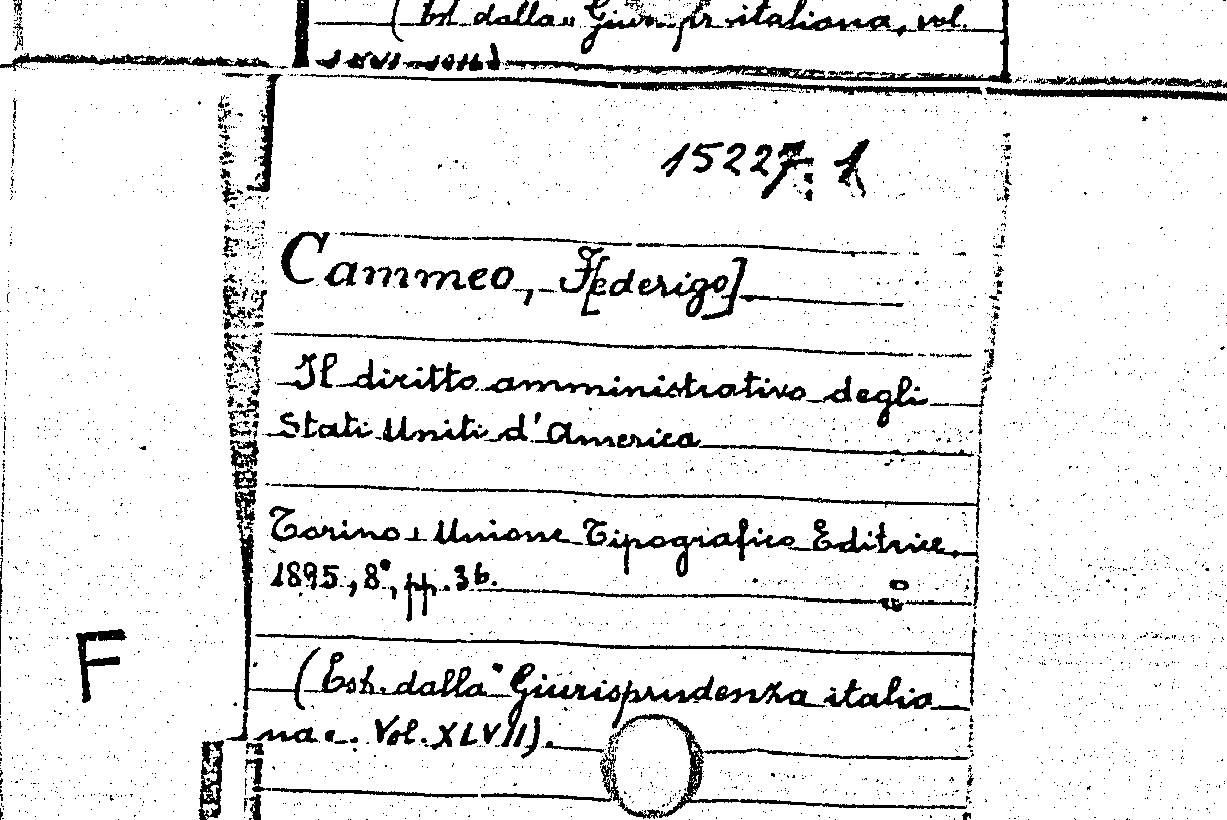 dalla "Giur italiana, vol.
15227. 1
Cammeo, F[ederigo]
Il diritto amministrativo degli
Stati Uniti d'America
Torino, Unione Tipografico Editrice,
1895, 8°, pp. 36.
F
(Estr. dalla "Giurisprudenza italia
na". Vol. XLVII).